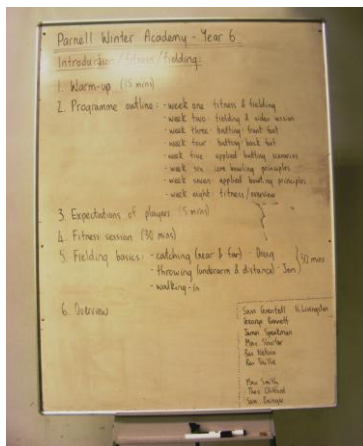 Parnell Winter Academy - Year 6
Introduction/fitness/fielding:
1. Warm-up (15 mins)
2. Programme outline: - week one fitness & fielding
- week two: fielding & video session
- week three: batting: front foot
- week four: batting back foot
- week five applied batting scenarios
- week six core bowling principles
- week seven: applied bowling principles
- week eight: fitness/overview
3. Expectations of players (5 mins)
4. Fitness session (30 mins)
5. Fielding basics: - catching (near & far) - Doug
- throwing (underarm & distance) - Jon
30 mins
- walking-in
6. Overview
Sam H. Livingston
George
James
Max
Max Smith
Theo Clifford
Sam